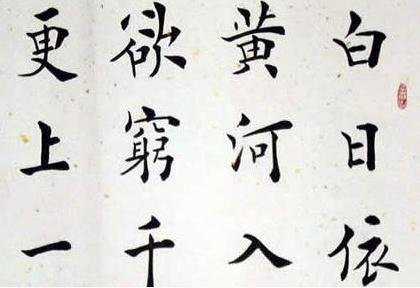 白日依
黄河入
欲窮千
更上一